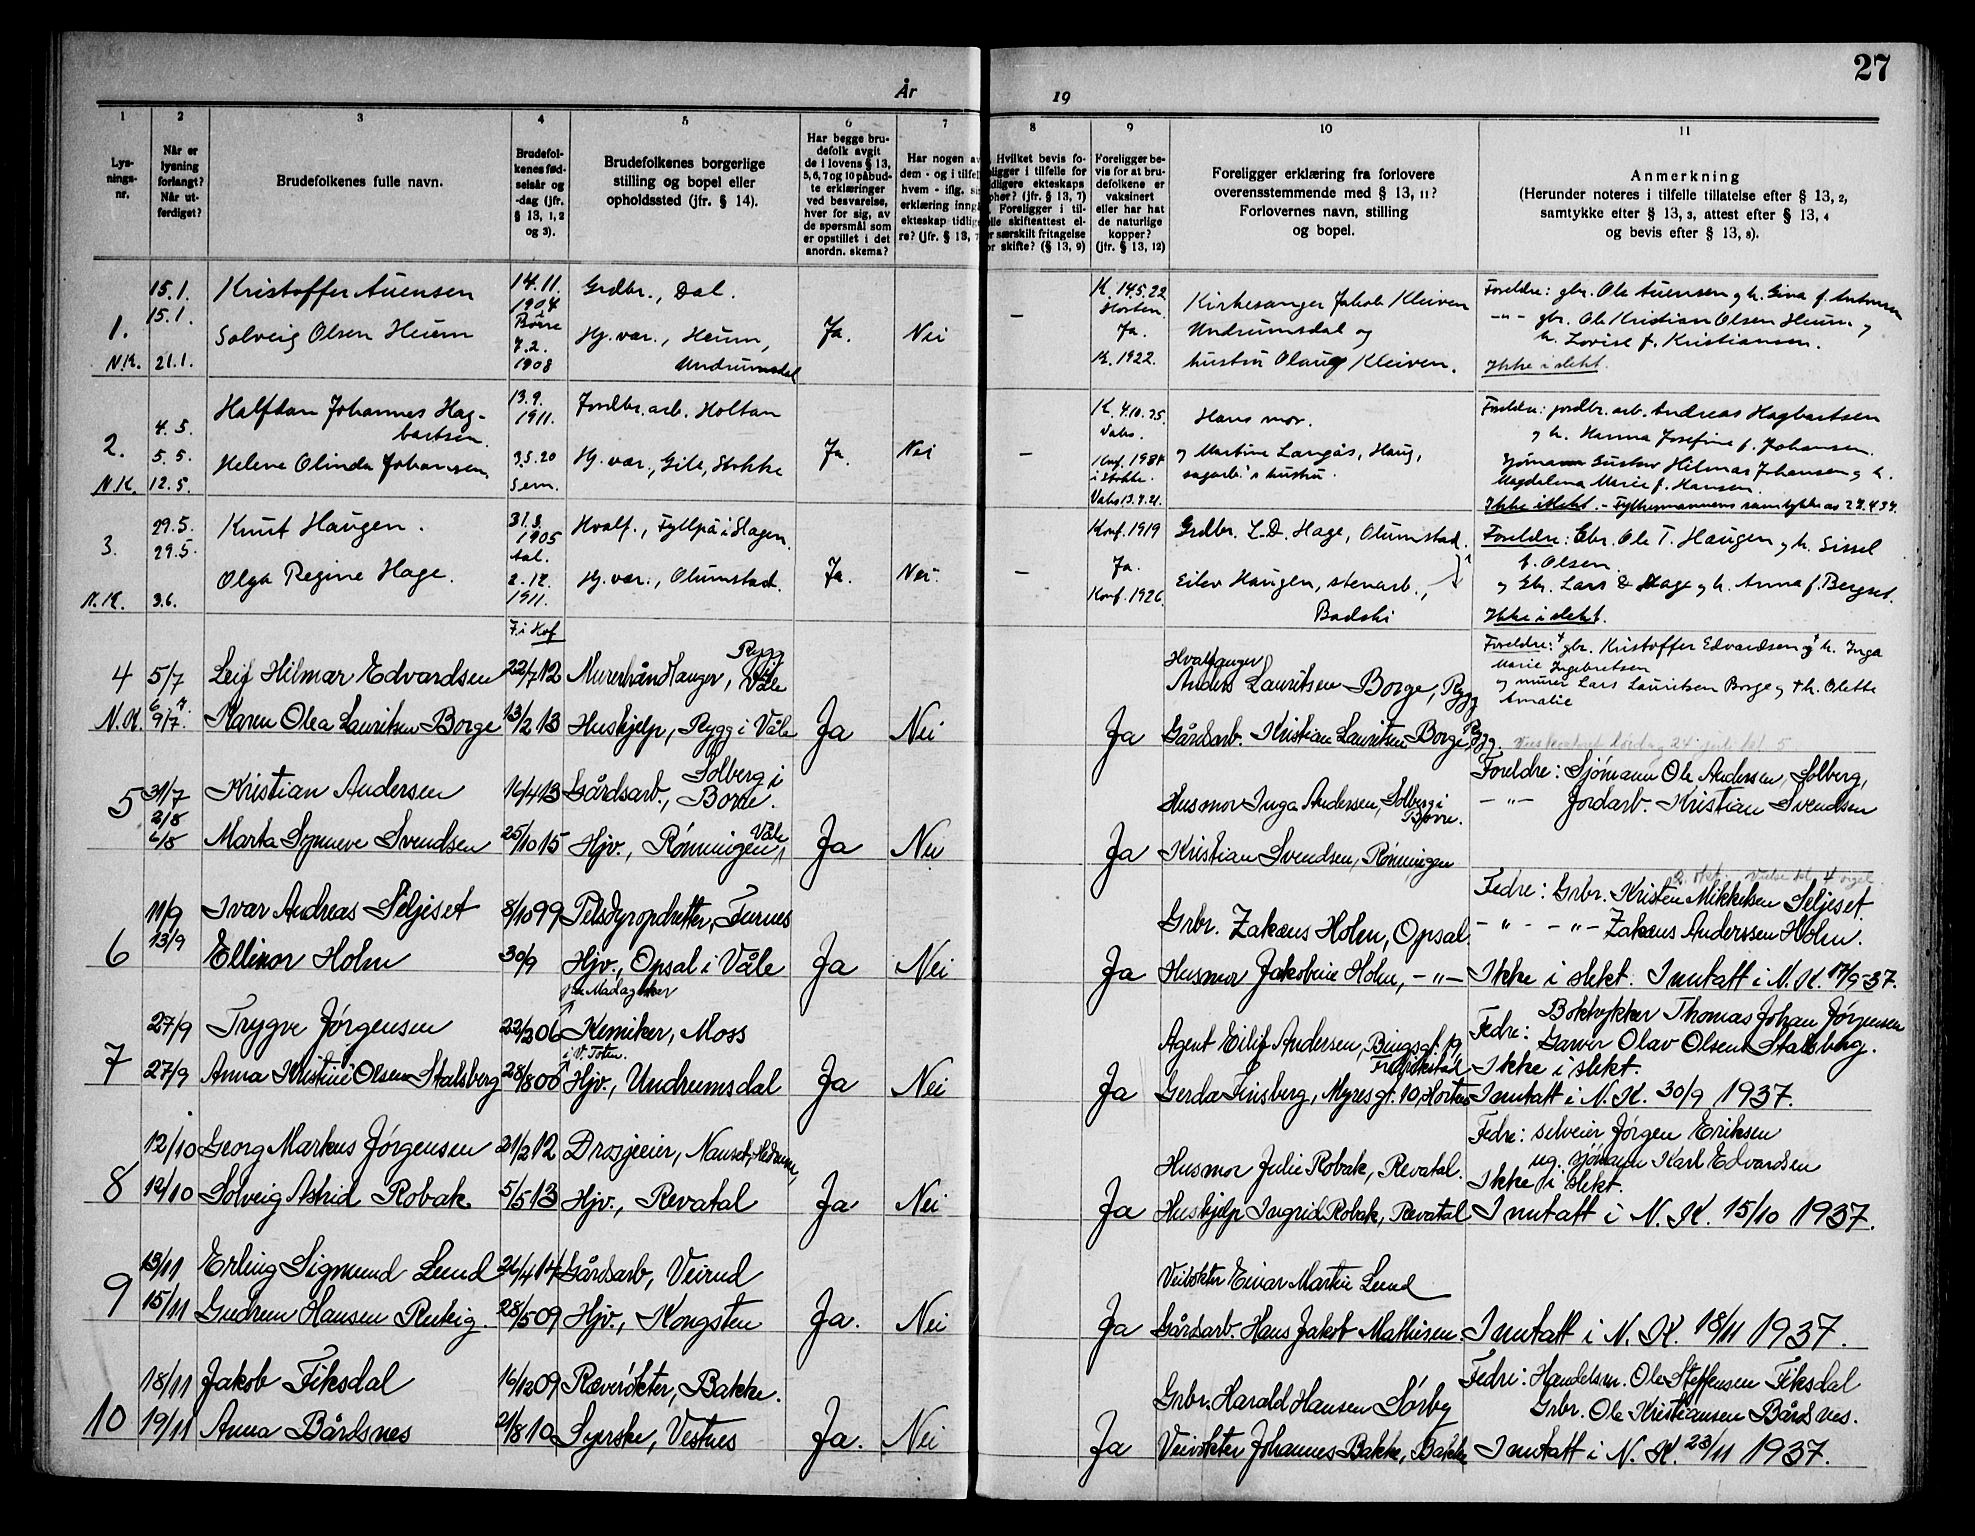 27
År
19
1
2
3
4
5
6
7
8
9
10
11
Lys-
nings-
nr.
Når er
lysning
forlangt?
Når ut-
ferdiget?
Brudefolkenes fulle navn.
Brudefol-
kenes fød-
selsår og
-dag (jfr.
§ 13, 1, 2
og 3).
Brudefolkenes borgerlige
stilling og bopel eller
opholdssted (jfr. § 14).
Har begge bru-
defolk avgit
de i lovens § 13,
5, 6, 7 og 10 påbud-
te erklæringer
ved besvarelse,
hver for sig, av
de spørsmål som
er opstillet i det
anordn. skema?
Har nogen av
dem - og i tilfel
hvem - iflg. si
erklæring inng
ekteskap tidlig
re? (jfr. § 13, 7
Hvilket bevis fo-
ligger i tilfelle for
dligere ekteskaps
phør? (jfr. § 13, 7)
Foreligger i til-
elle skifteattest el-
r særskilt fritagelse
or skifte? (§ 13, 9)
Foreligger be-
vis for at bru-
defolkene er
vaksinert
eller har hat
de naturlige
kopper?
(jfr. § 13, 12)
Foreligger erklæring fra forlovere
overensstemmende med § 13, 11?
Forlovernes navn, stilling
og bopel.
Anmerkning
(Herunder noteres i tilfelle tillatelse efter § 13, 2,
samtykke efter § 13, 3, attest efter § 13, 4
og bevis efter § 13, 8).
15.1. Kristoffer Auensen 14.11. 1904 Børre Grdbr., Dal. K. 14.5.22 Horten. Kirkesanger Jakob Kleiven Foreldre: gbr. Ole Auensen og h. Gina f. Antonsen
1. 15.1. Solveig Olsen Heum 7.2. Hj.var., Heum, Ja. Nei — Ja. Undrumsdal og -"- gbr. Ole Kristian Olsen Heum og
h. Lovise f. Kristiansen.
N.K. 21.1. 1908 Undrumsdal K. 1922. hustru Olaug Kleiven. Ikke i slekt.
4.5. Halfdan Johannes Hag- 13.9. 1911. Jordbr.arb. Holtan K. 4.10.25 Vabs. Hans mor. Foreldre: jordbr.arb. Andreas Hagbartsen
bartsen. og h. Hanna Josefine f. Johansen.
2. 5.5. Helene Olinda Johansen 3.5.20 Hj.var., Gile, Stokke Ja. Nei — i Stokke. og Martine Langås, Haug, Gustav Hilmar Johansen og h.
N.K. 12.5. Sem. Vabs. hustru. Magdelena Marie f. Hansen.
Ikke i slekt. -
29.5. Knut Haugen. 31.3. 1905 Aal. Hvalf., i Slagen. Konf. 1919 Grdbr. L.D. Hage, Olumstad. Foreldre: Gbr. Ole T. Haugen og h. Sissel
f. Olsen.
3. 29.5. Olga Regine Hage. 2.12. 1911. Hj.var., Olumstad. Ja. Nei. — Ja. Eilev Haugen, stenarb., og Gbr. Lars D. Hage og h. Anna f. Bergset.
N.K. 3.6. Konf. 1926 Ikke i slekt.
F. i Hof
4 5/7 Leif Hilmar Edvardsen 22/7 12 Murerhåndlanger, Rygg i Våle Hvalfanger Anders Lauritsen Borge, Rygg Foreldre: gbr. Kristoffer Edvardsen og h. Inga
Marie Ingebretsen
og murer Lars Lauritsen Borge og h. Olette
Amalie
N.K. 6/7 9/7. Karen Olea Lauritsen Borge 13/2 13 Hushjelp, Rygg i Våle Ja Nei Ja Gårdsarb. Kristian Lauritsen Borge, Rygg.
5 31/7 Kristian Andersen 16/4 13 Gårdsarb., Solberg i Borre. Husmor Inga Andersen, Solberg i Borre. Foreldre: Sjømann Ole Andersen, Solberg,
2/8 -"- Jordarb. Kristian Svendsen
6/8 Marta Synneve Svendsen 25/10 15 Hjv., Rønningen, Våle Ja Nei Ja Kristian Svendsen, Rønningen
11/9 Ivar Andreas Seljeset 8/10 99 Pelsdyropdretter, Furnes Grbr. Zakæus Holm, Opsal. Fedre: Grbr. Kristen Mikkelsen Seljeset.
-"- -"- Zakæus Anderssen Holm.
6 13/9 Ellinor Holm 30/9 Hjv., Opsal i Våle Ja Nei Ja Husmor Jakobine Holm, -"- Ikke i slekt. Inntatt i N.K. 17/9-37.
27/9 Trygve Jørgensen 22/2 06 Kemiker, Moss Agent Eilif Andersen, Bingsgt. 19, Fredrikstad Fedre: Boktrykker Thomas Johan Jørgensen
Garver Olav Olsen Stalsberg.
7 27/9 Anna Kristine Olsen Stalsberg 28/8 00 i V. Toten. Hjv., Undrumsdal Ja Nei Ikke i slekt.
Ja Gerda Finsberg, Myresgt. 10, Horten Inntatt i N.K. 30/9 1937.
12/10 Georg Markus Jørgensen 21/2 12 Drosjeeier, Nanset, Hedrum, Husmor Julie Robak, Revatal. Fedre: selveier Jørgen Eriksen
og sjømann Karl Edvardsen
Ikke i slekt.
8 12/10 Solveig Astrid Robak 5/5 13 Hjv., Revatal Ja Nei Ja Hushjelp Ingrid Robak, Revatal Inntatt i N.K. 15/10 1937.
13/11 Erling Sigmund Lund 26/4 14 Gårdsarb, Veirud Veivokter Einar Martin Lund
9 15/11 Gudrun Hansen Rukig. 28/5 09 Hjv., Kongsten Ja. Nei Ja Gårdsarb. Hans Jakob Mathisen. Inntatt i N.K. 18/11 1937.
18/11 Jakob Fiksdal 16/12 09 Røverøkter, Bakke. Grbr. Harald Hansen Sørby Fedre: Handelsm. Ole Steffensen Fiksdal
Grbr. Ole Kristiansen Bårdsnes.
10 19/11 Anna Bårdsnes 21/8 10 Syerske, Vestnes Ja. Nei Ja Veivokter Johannes Bakke, Bakke Inntatt i N.K. 23/11 1937.